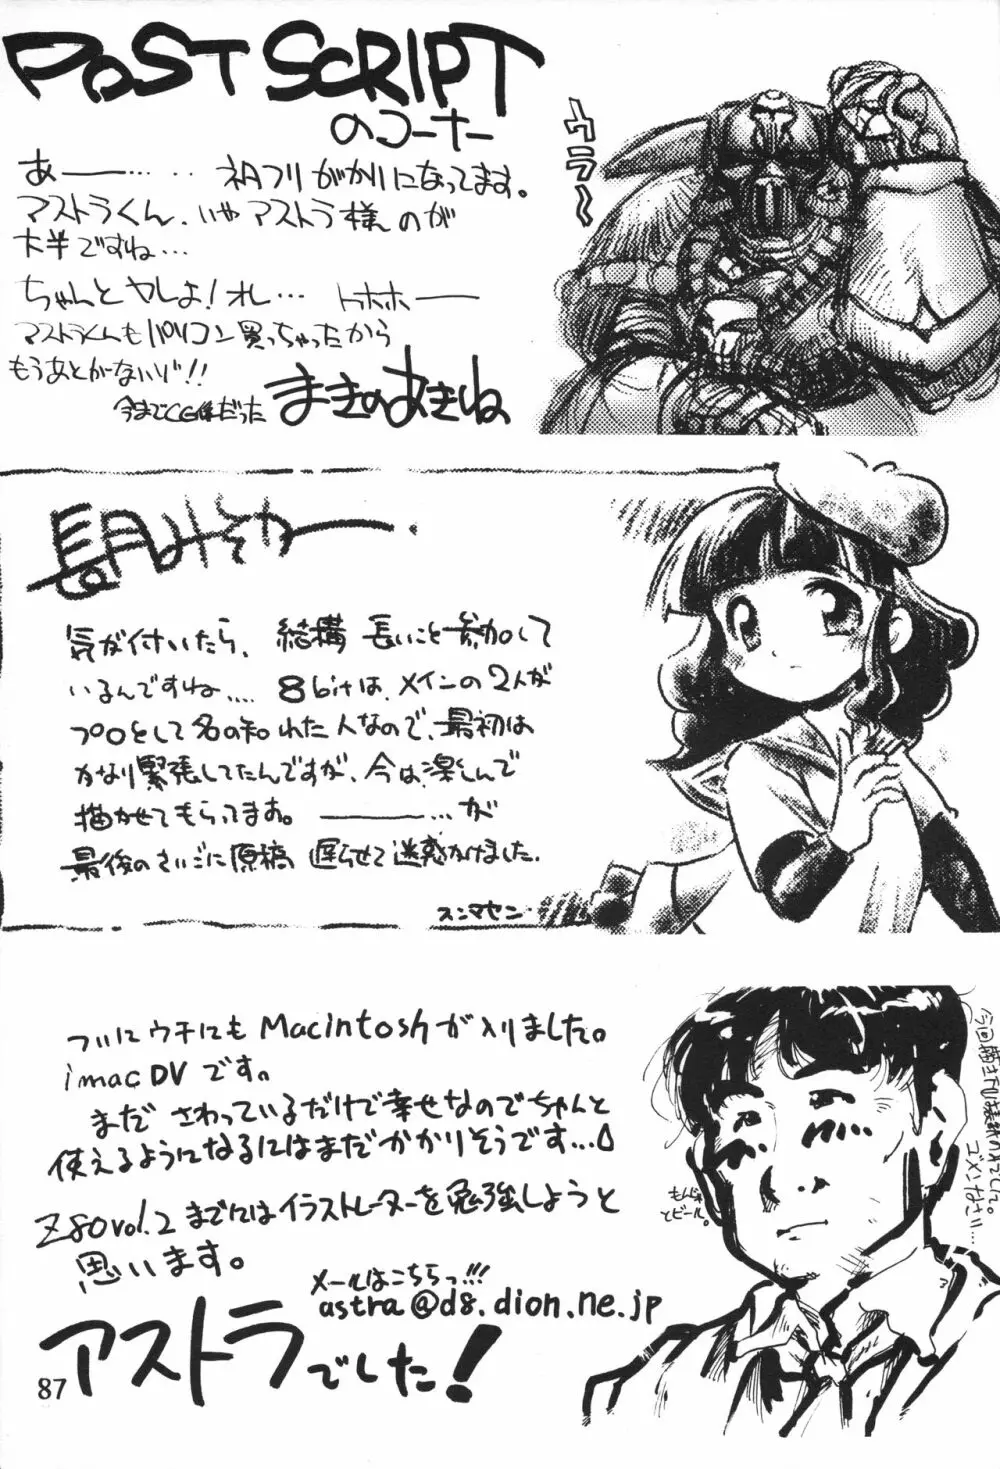 POST SCRIPT
のコーナー
ウラ〜
あ———… ‥ 祖フリがかりになってます。
マストラくん、いやアストラ様のが
大半ですね…
ちゃんとヤレよ!オレ… トホホ——
マストラくんもパソコン買っちゃったから
もうあとがないゾ!!
今までCG係だった
まきのあきね
長月みそか——.
気が付いたら、結構 長いこと参加して
いるんですね.... 8bitは、メインの2人が
プロとして名の知れた人なので、最初は
かなり緊張してたんですが、今は楽しんで
描かせてもらってます。————…が
最後のさいごに原稿 遅らせて迷惑かけました.
スンマセン
ついにウチにも Macintoshが入りました。
imac DV です。
まだ さわっているだけで幸せなのでちゃんと
使えるようになるにはまだかかりそうです…
Z80vol.2 までにはイラストレーターを勉強しようと
思います。
メールはこちらっ!!!
astra@d8.dion.ne.jp
アストラでした!
もんじゃ
とビール。
ゴメンなさい…
87